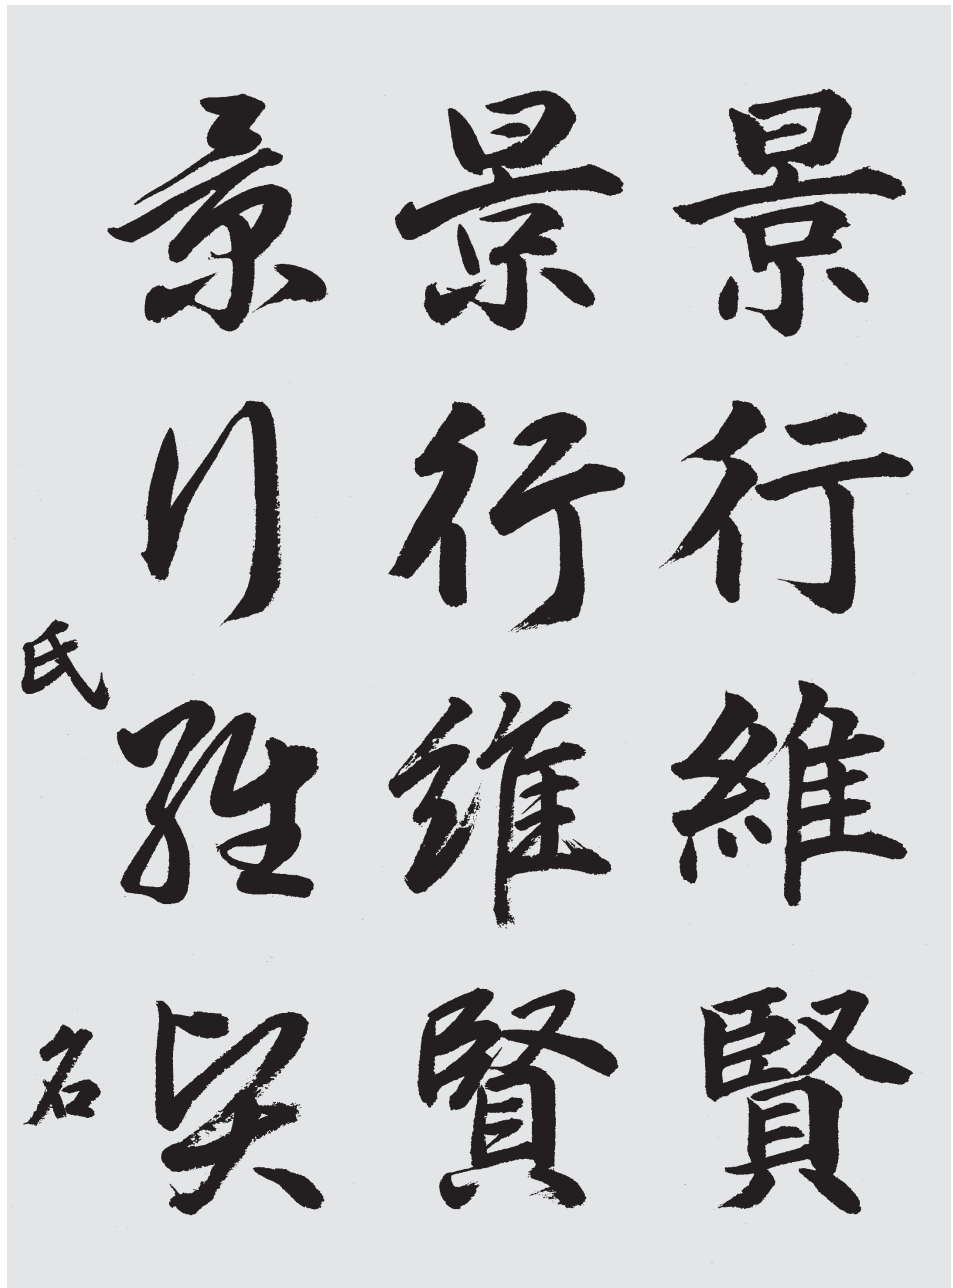 景行維賢
景行維賢
景行維賢
氏名